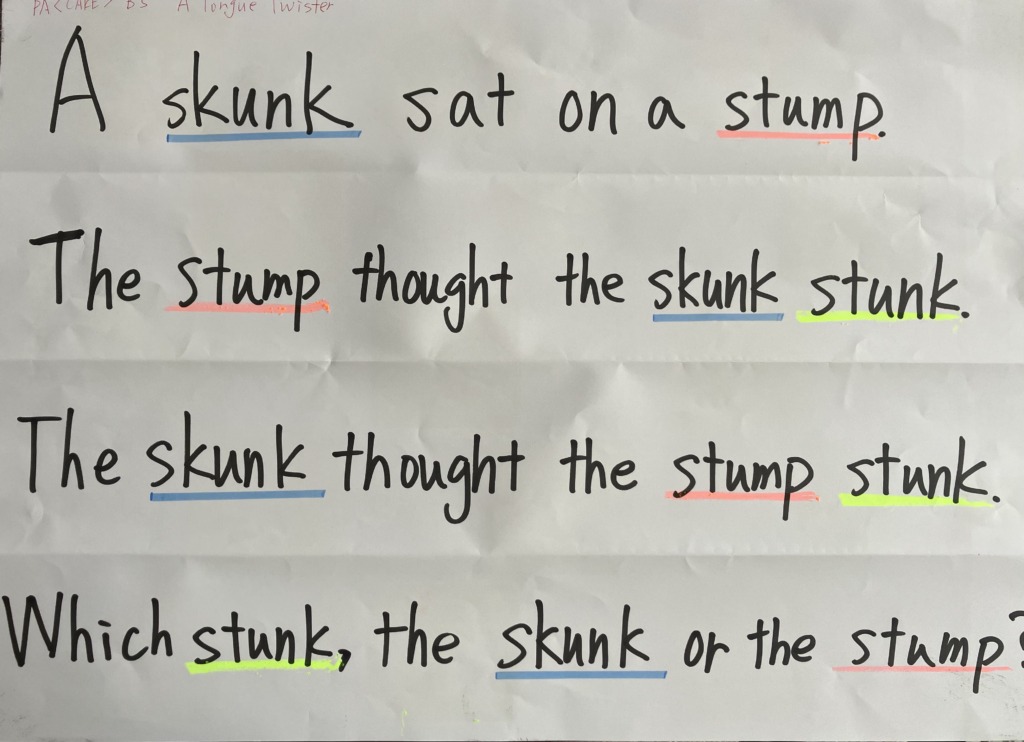 A Tongue Twister
A skunk sat on a stump.
The stump thought the skunk stunk.
The skunk thought the stump stunk.
Which stunk, the skunk or the stump?